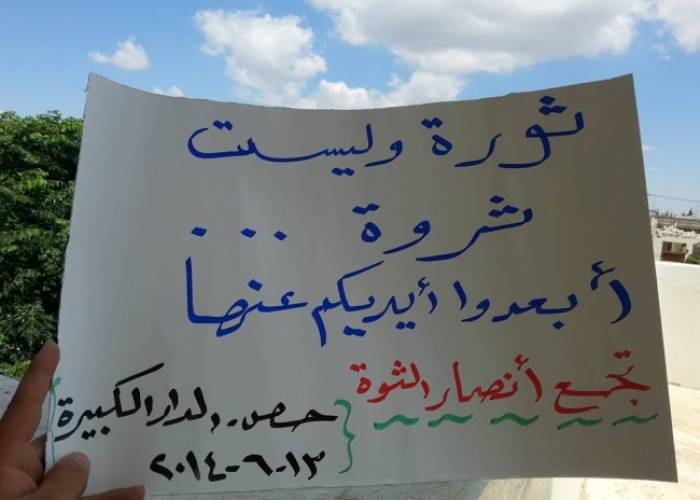 ثورة وليست
ثروة ...
أبعدوا أيديكم عنها
تجمع أنصار الثوة
حمص - الدار الكبيرة
١٣-٦-٢٠١٤